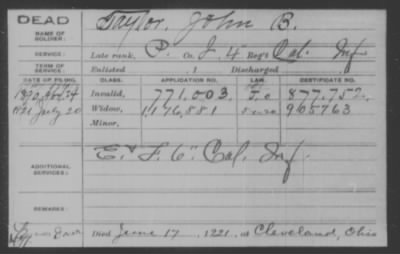 DEAD
NAME OF SOLDIER:
Taylor, John B.
SERVICE:
Late rank, P. Co. I, 4 Reg't Cal. Inf
TERM OF SERVICE:
Enlisted , 1 Discharged
DATE OF FILING. CLASS. APPLICATION NO. LAW. CERTIFICATE NO.
1890 24 Invalid, 771.003. 877.752.
1921 July 20 Widow, 1,176,881 905763
Minor,
ADDITIONAL SERVICES:
E, F. 6" Cal. Inf.
REMARKS:
Died June 17, 1921, at Cleveland, Ohio